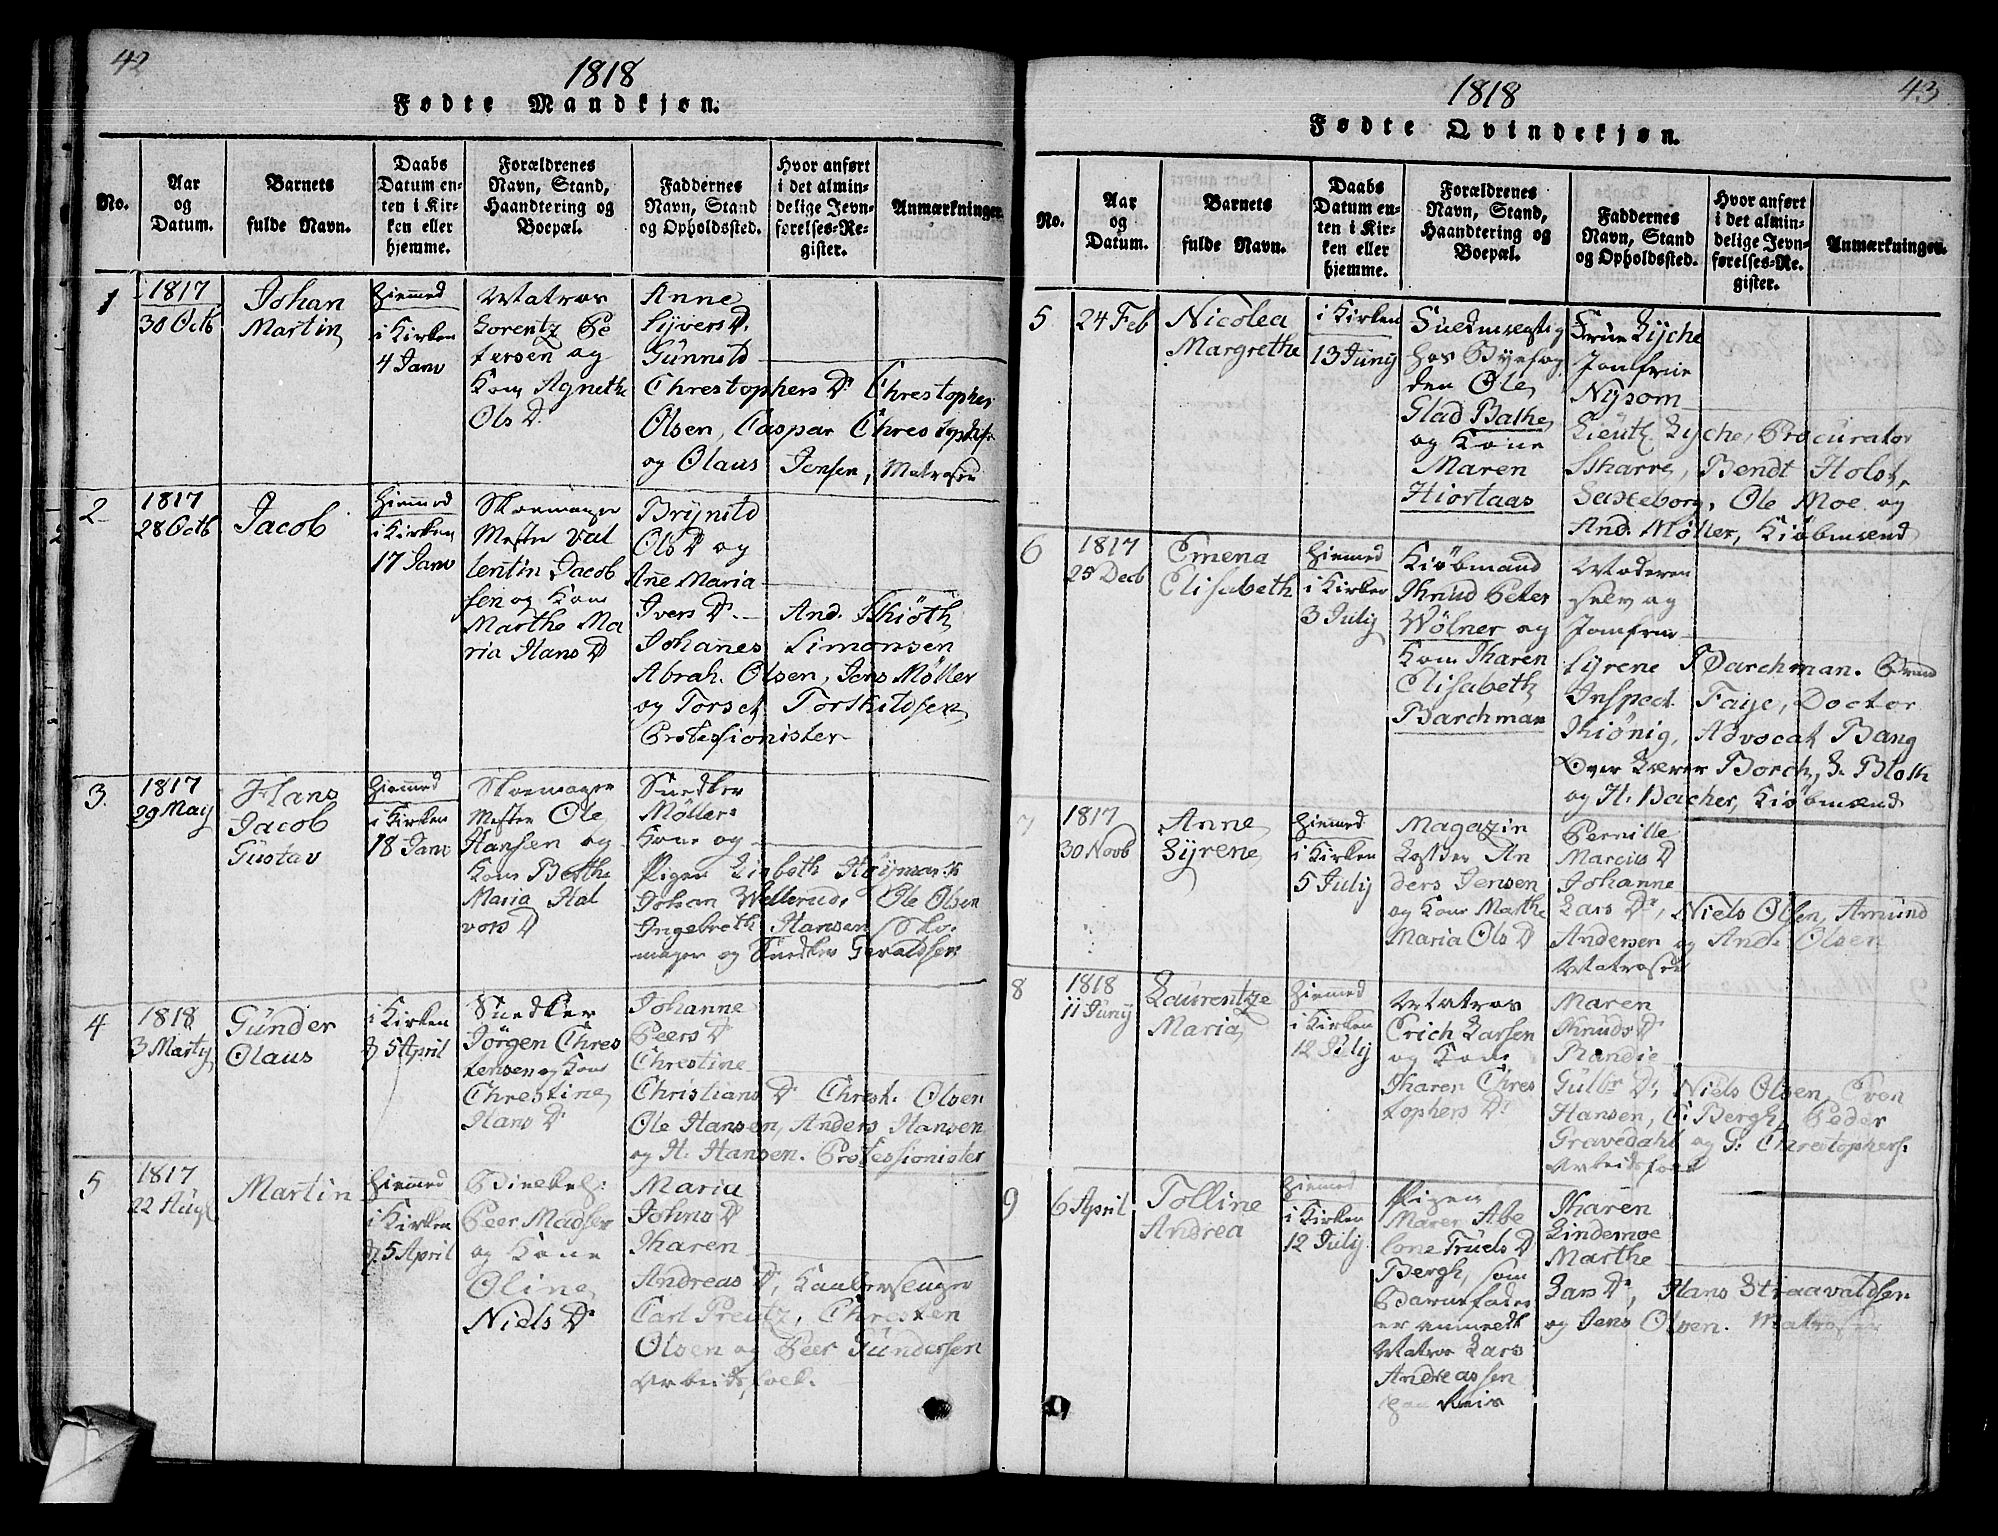 42
1818
Fødte Mandkjøn.
No.
Aar
og
Datum.
Barnets
fulde Navn.
Daabs
Datum en-
ten i Kir-
ken eller
hjemme.
Forældrenes
Navn, Stand,
Haandtering og
Boepæl.
Faddernes
Navn, Stand
og Opholdssted.
Hvor anført
i det almin-
delige Jevn-
førelses-Re-
gister.
Anmærkninger.
1
1817
30 Octb
Johan
Martin
Hiemmed
i Kirken
4 Janv
Matros
Lorentz Pe
tersen og
Kone Agnethe
Ols Dr
Anne
Syvers D.
Gunnild
Chrestophers Dr Chrestopher
Olsen, Caspar Chrestophers
og Olaus Jensen, Matroser
2
1817
28 Octb
Jacob
Hiemmed
i Kirken
17 Janv
Skoemager
Mester Val
lentin Jacob
sen og Kone
Marthe Ma
ria Hans D
Brynild
Ols D og
Anne Maria
Ivers Dr. And. Skiøth
Johannes Simonsen
Abrah. Olsen, Jens Møller
og Torset Torkildsen
Professionister
3.
1817
29 May
Hans
Jacob
Gustav
Hiemmed
i Kirken
18 Janv
Skoemager
Mester Ole
Hansen og
Kone Berthe
Maria Hal
vors D
Snedker
Møllers
Kone og
Pigen Lisbeth
Johan Wellerud, Ole Olsen
Ingebreth Hansen Sko-
mager og Snedker Geraldsen
4
1818
3 Marty
Gunder
Olaus
i Kirken
d 5 April
Snedker
Jørgen Chres
tensen og Kone
Chrestine
Hans Dr
Johanne
Peers D
Chrestine
Christians Dr Chrest. Olsen
Ole Hansen, Anders Hansen
og H. Hansen. Professionister
5
1817
22 Aug
Martin
Hiemmed
i Kirken
d. 5 April
Peer Madsen
og Kone
Oline
Niels Dr
Maria
Johns D
Karen
Andreas D,
Carl Preutz, Chresten
Olsen og Peer Gundersen
Arbeidsfolk.
43
1818
Fødte Qvindekjøn.
No.
Aar
og
Datum.
Barnets
fulde Navn.
Daabs
Datum en-
ten i Kir-
ken eller
hjemme.
Forældrenes
Navn, Stand,
Haandtering og
Boepæl.
Faddernes
Navn, Stand
og Opholdssted.
Hvor anført
i det almin-
delige Jevn-
førelses-Re-
gister.
Anmærkninger.
5
24 Feb
Nicolea
Margrethe
i Kirken
13 Juny
Fuldmægtig
hos Byefog
den Ole
Glad Bathe
og Kone
Maren
Hiortaas
Frue Lyche
Jomfrue
Nysom
Lieut. Lyche, Procurator
Skarre, Bendt Holst,
Saxeborg, Ole Moe og
And. Møller, Kiøbmænd
6
1817
25 Decb
Emena
Elisabeth
Hiemmed
i Kirken
3 July
Kiøbmand
Knud Peter
Wølner og
Kone Karen
Elisabeth
Barchman
Moderen
selv og
Jomfrue
Syrene Barchman.
Inspect. Faije, Doctor
Kiønig, Advocat Bang
Over Lærer Borch, S. Bloth
og H. Bacher, Kiøbmænd
7
1817
30 Novb
Anne
Syrene
Hiemmed
i Kirken
5 July
Magazin
Betjent An
ders Jensen
og Kone Marthe
Maria Ols D
Pernille
Marcus D
Johanne
Lars Dr, Niels Olsen, Amund
Andersen og And. Olsen
Matroser
8
1818
11 Juny
Laurentze
Maria
Hiemmed
i Kirken
12 July
Matros
Erich Larsen
og Kone
Karen Chres
tophers Dr
Maren
Knuds D
Randie
Gulbr D, Niels Olsen, Even
Hansen, C Bergh, Peder
Gravedahl og G. Chrestophers.
Arbeidsfolk
9
6 April
Tolline
Andrea
Hiemmed
i Kirken
12 July
Pigen
Maren Abe
lone Truels D
Bergh, som
Barnefader
er anmeldt
Matros Lars
Andreassen
paa Reis
Karen
Lindemoe
Marthe
Lars Dr, Hans Straavaldsen
og Jens Olsen. Matroser